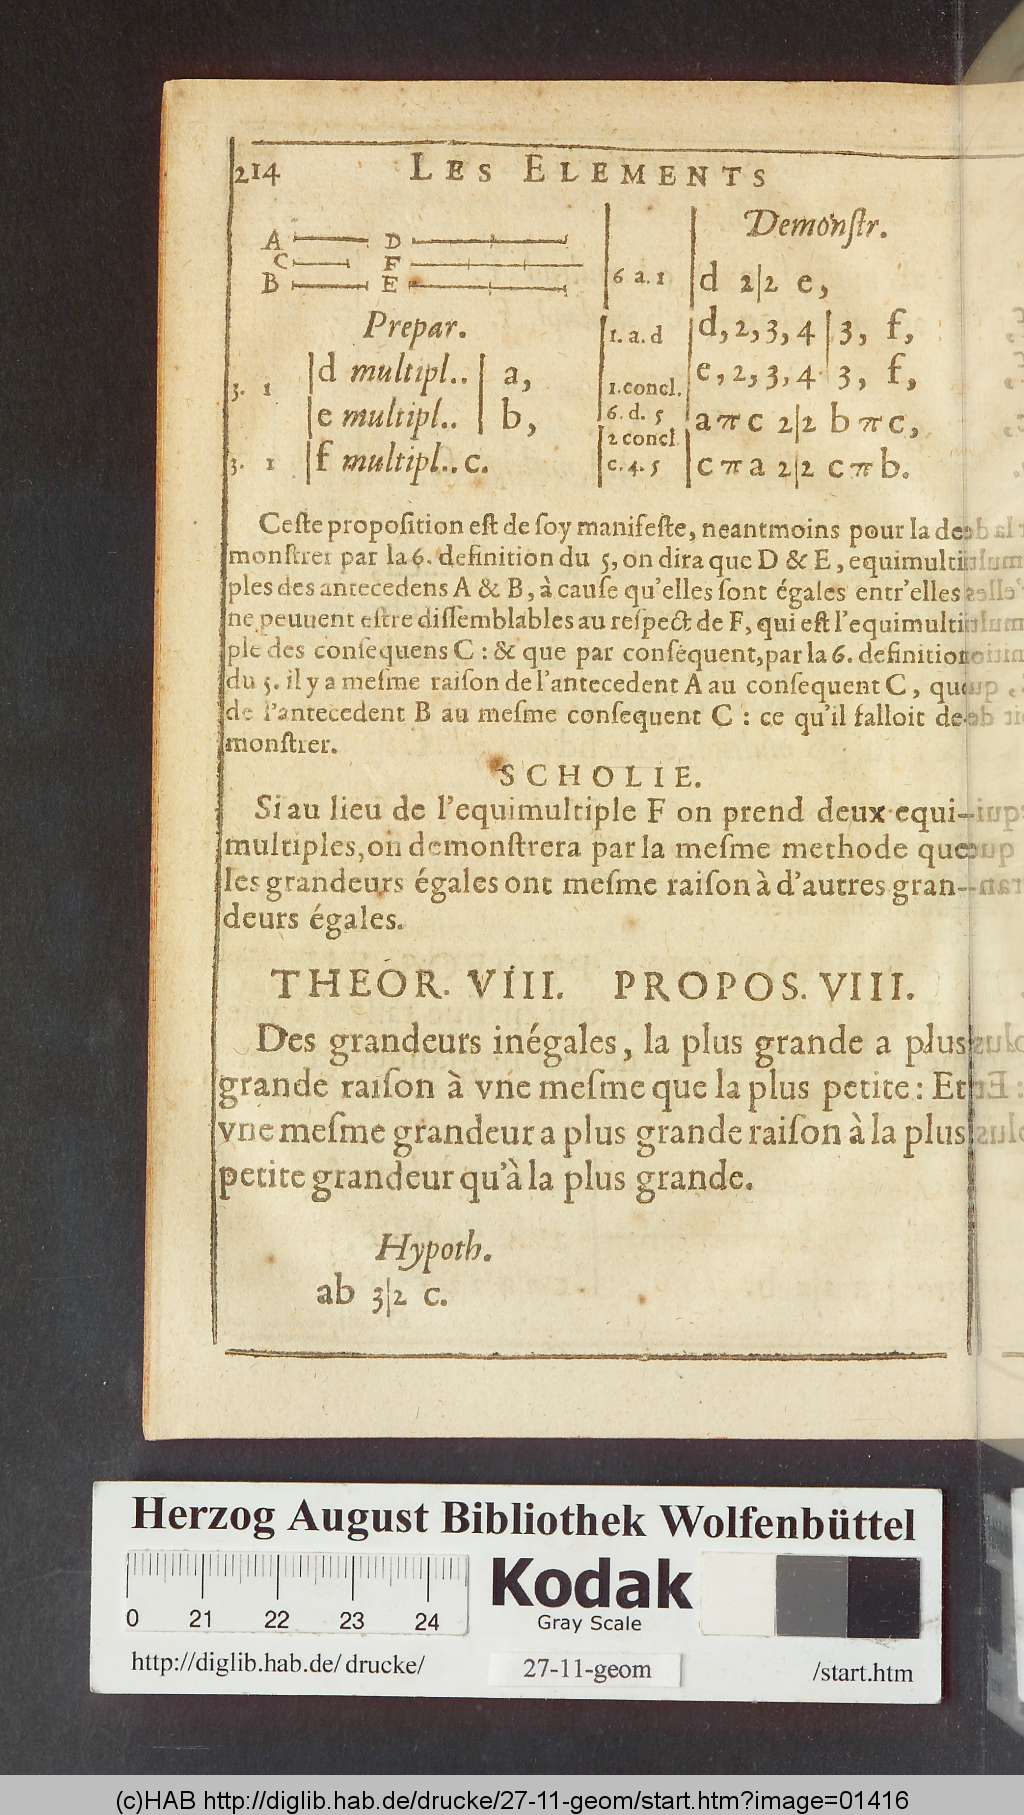 214 LES ELEMENTS
A D
C F
B E
Prepar.
3. 1 | d multipl.. | a,
| e multipl.. | b,
3. 1 | f multipl.. c.
Demonstr.
6 a. 1 | d 2|2 e,
1. a. d | d, 2, 3, 4 | 3, f,
1. concl. | e, 2, 3, 4 3, f,
6. d. 5 | a π c 2|2 b π c,
2 concl
c. 4. 5 | c π a 2|2 c π b.
Ceſte propoſition eſt de ſoy manifeſte, neantmoins pour la de-
monſtrer par la 6. definition du 5, on dira que D & E, equimulti-
ples des antecedens A & B, à cauſe qu'elles ſont égales entr'elles
ne peuuent eſtre diſſemblables au reſpect de F, qui eſt l'equimulti-
ple des conſequens C : & que par conſequent, par la 6. definition
du 5. il y a meſme raiſon de l'antecedent A au conſequent C, que
de l'antecedent B au meſme conſequent C : ce qu'il falloit de-
monſtrer.
SCHOLIE.
Si au lieu de l'equimultiple F on prend deux equi-
multiples, on demonſtrera par la meſme methode que
les grandeurs égales ont meſme raiſon à d'autres gran-
deurs égales.
THEOR. VIII. PROPOS. VIII.
Des grandeurs inégales, la plus grande a plus
grande raiſon à vne meſme que la plus petite : Et
vne meſme grandeur a plus grande raiſon à la plus
petite grandeur qu'à la plus grande.
Hypoth.
ab 3|2 c.
Herzog August Bibliothek Wolfenbüttel
0 21 22 23 24
Kodak
Gray Scale
http://diglib.hab.de/drucke/ 27-11-geom /start.htm
(c)HAB http://diglib.hab.de/drucke/27-11-geom/start.htm?image=01416